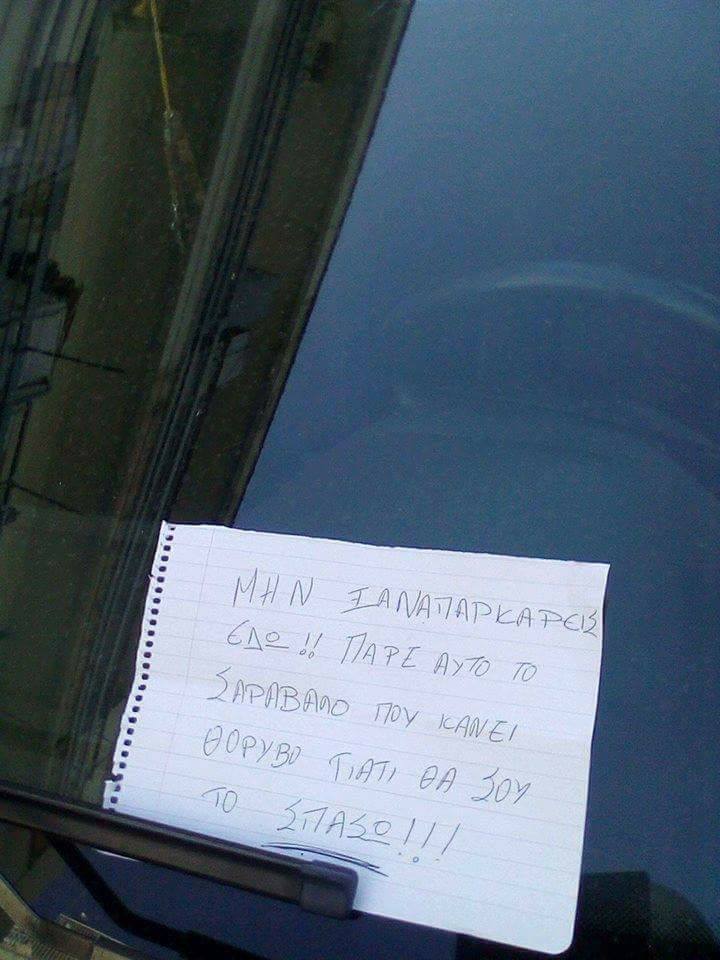 ΜΗΝ ΞΑΝΑΠΑΡΚΑΡΕΙΣ
ΕΔΩ!! ΠΑΡΕ ΑΥΤΟ ΤΟ
ΣΑΡΑΒΑΛΟ ΠΟΥ ΚΑΝΕΙ
ΘΟΡΥΒΟ ΓΙΑΤΙ ΘΑ ΣΟΥ
ΤΟ ΣΠΑΣΩ!!!